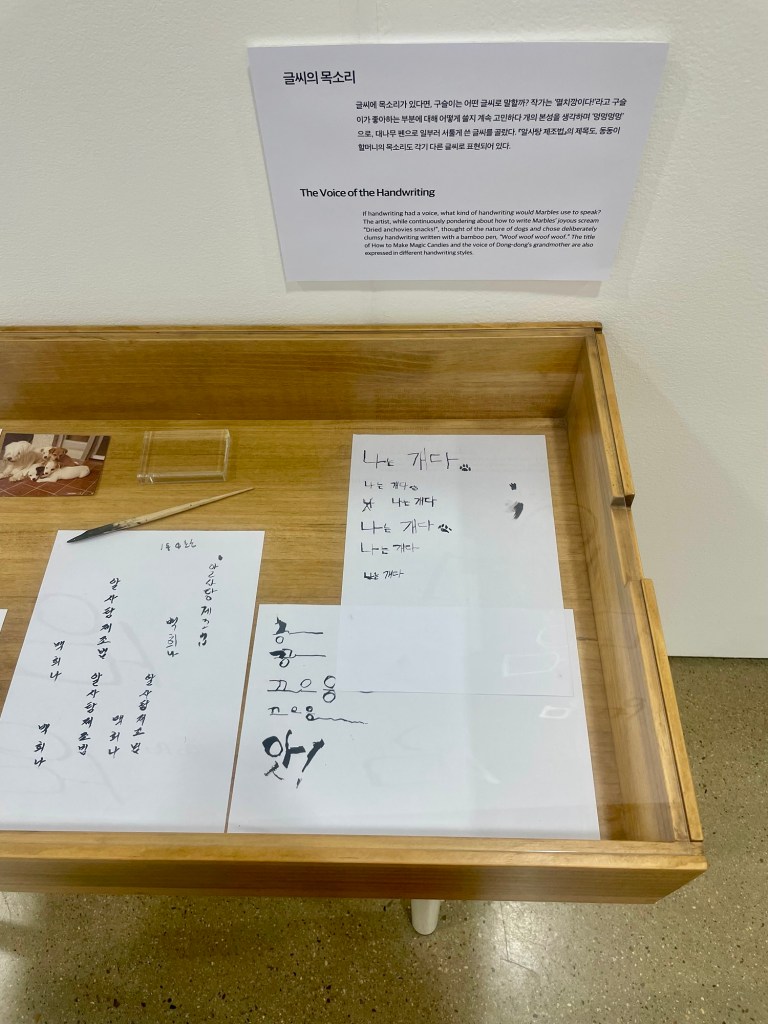 글씨의 목소리
글씨에 목소리가 있다면, 구슬이는 어떤 글씨로 말할까? 작가는 '멸치깡이다!'라고 구슬
이가 좋아하는 부분에 대해 어떻게 쓸지 계속 고민하다 개의 본성을 생각하며 '멍멍멍멍'
으로, 대나무 펜으로 일부러 서툴게 쓴 글씨를 골랐다. 『알사탕 제조법』의 제목도, 동동이
할머니의 목소리도 각기 다른 글씨로 표현되어 있다.
The Voice of the Handwriting
If handwriting had a voice, what kind of handwriting would Marbles use to speak?
The artist, while continuously pondering about how to write Marbles' joyous scream
"Dried anchovies snacks!", thought of the nature of dogs and chose deliberately
clumsy handwriting written with a bamboo pen, "Woof woof woof woof." The title
of How to Make Magic Candies and the voice of Dong-dong's grandmother are also
expressed in different handwriting styles.
나는 개다
나는 개다
나는 개다
나는 개다
나는 개다
나는 개다
알사탕 제조법
백희나
알사탕제조법
백희나
알사탕제조법
백희나
알사탕제조법
백희나
킁
킁
끄으응
끄으응
앗!